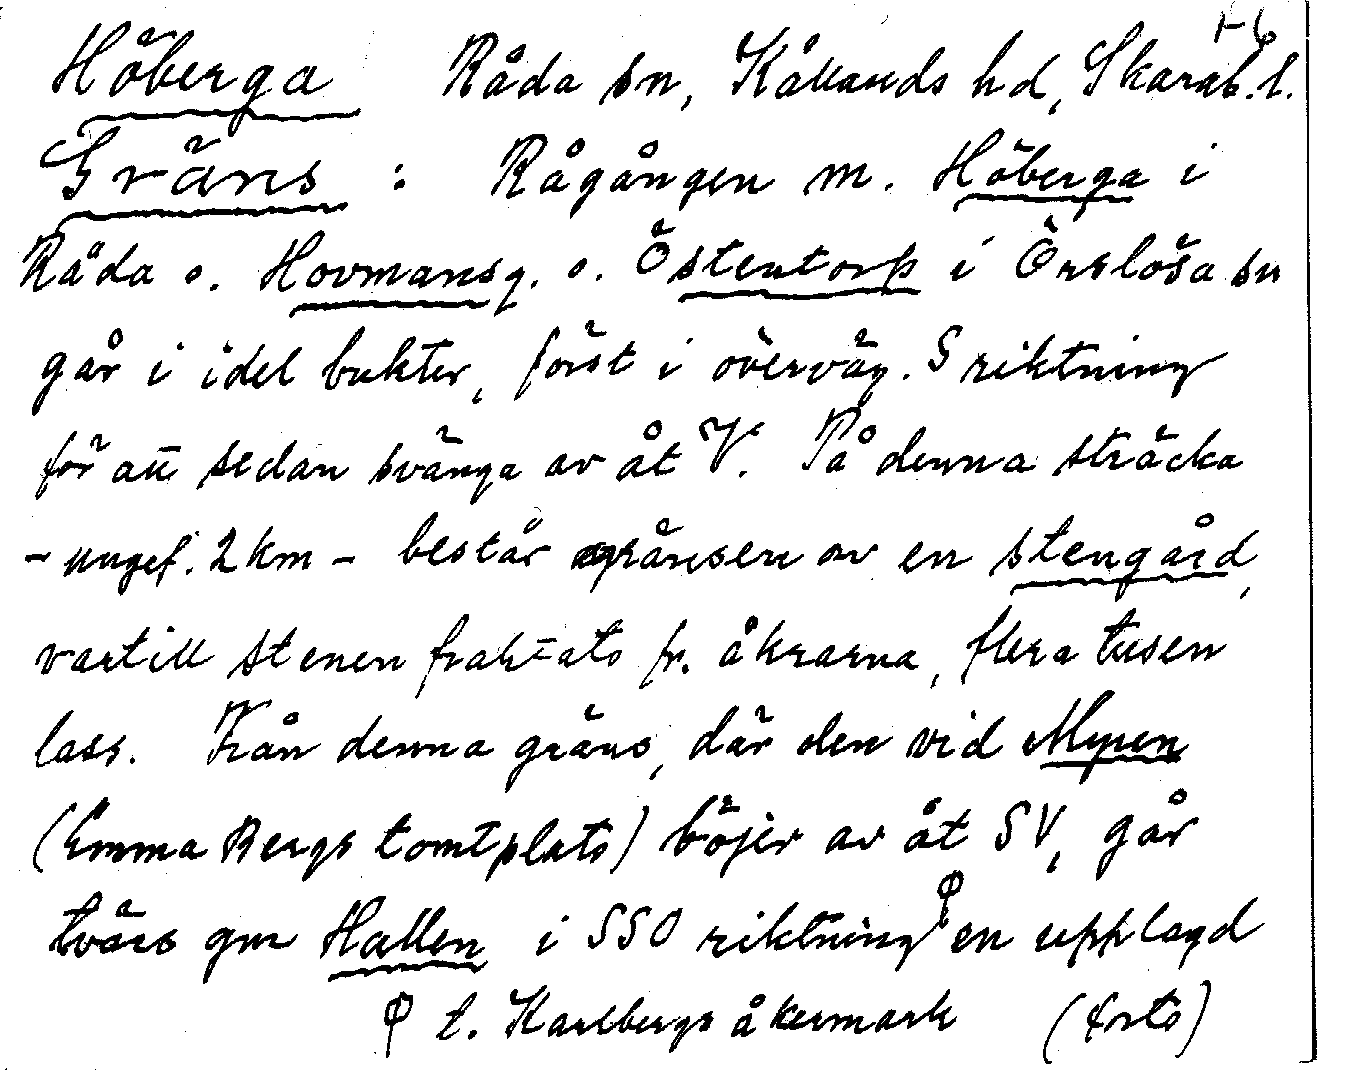 Höberga Råda sn, Kållands hd, Skarab. l.
Gräns : Rågången m. Höberga i
Råda o. Hovmansg. o. Östentorp i Örslösa sn
går i idel bukter, först i överväg. S riktning
för att sedan svänga av åt V. På denna sträcka
- ungef. 2 km - består gränsen av en stengärd,
vartill stenen fraktats fr. åkrarna, flera tusen
lass. Från denna gräns, där den vid Myren
(Emma Bergs tomtplats) böjer av åt SV, går
tvärs gm Hallen i SSO riktning φ en upplagd
φ t. Karlbergs åkermark (forts)